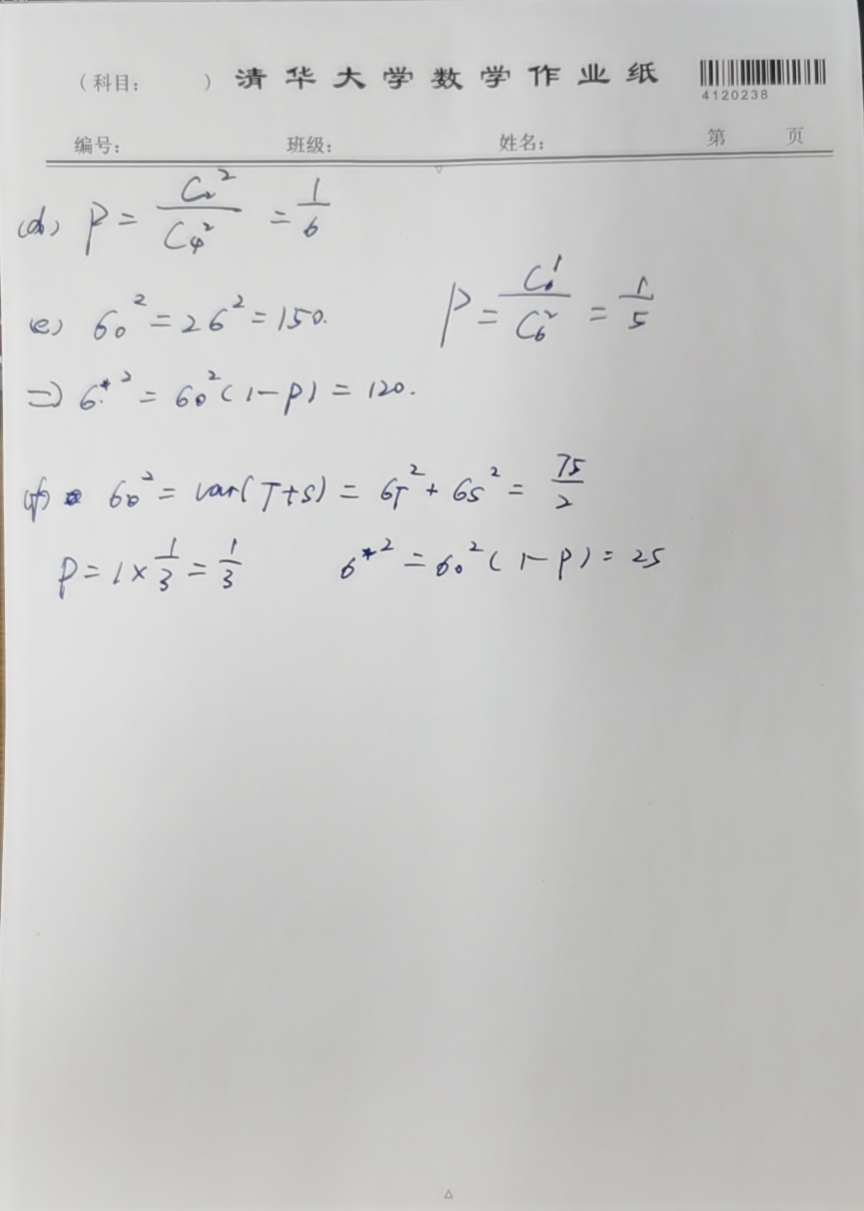 (科目: ) 清华大学数学作业纸
4120238
编号: 班级: 姓名: 第 页
(d) P = C₂² / C₄² = 1/6
(e) 6₀² = 26² = 150. P = / C₆² = 1/5
=> 6*² = 6₀²(1-P) = 120.
(f) 6₀² = var(T+S) = 6T² + 6S² = 75/2
P = 1 × 1/3 = 1/3 6*² = 6₀²(1-P) = 25